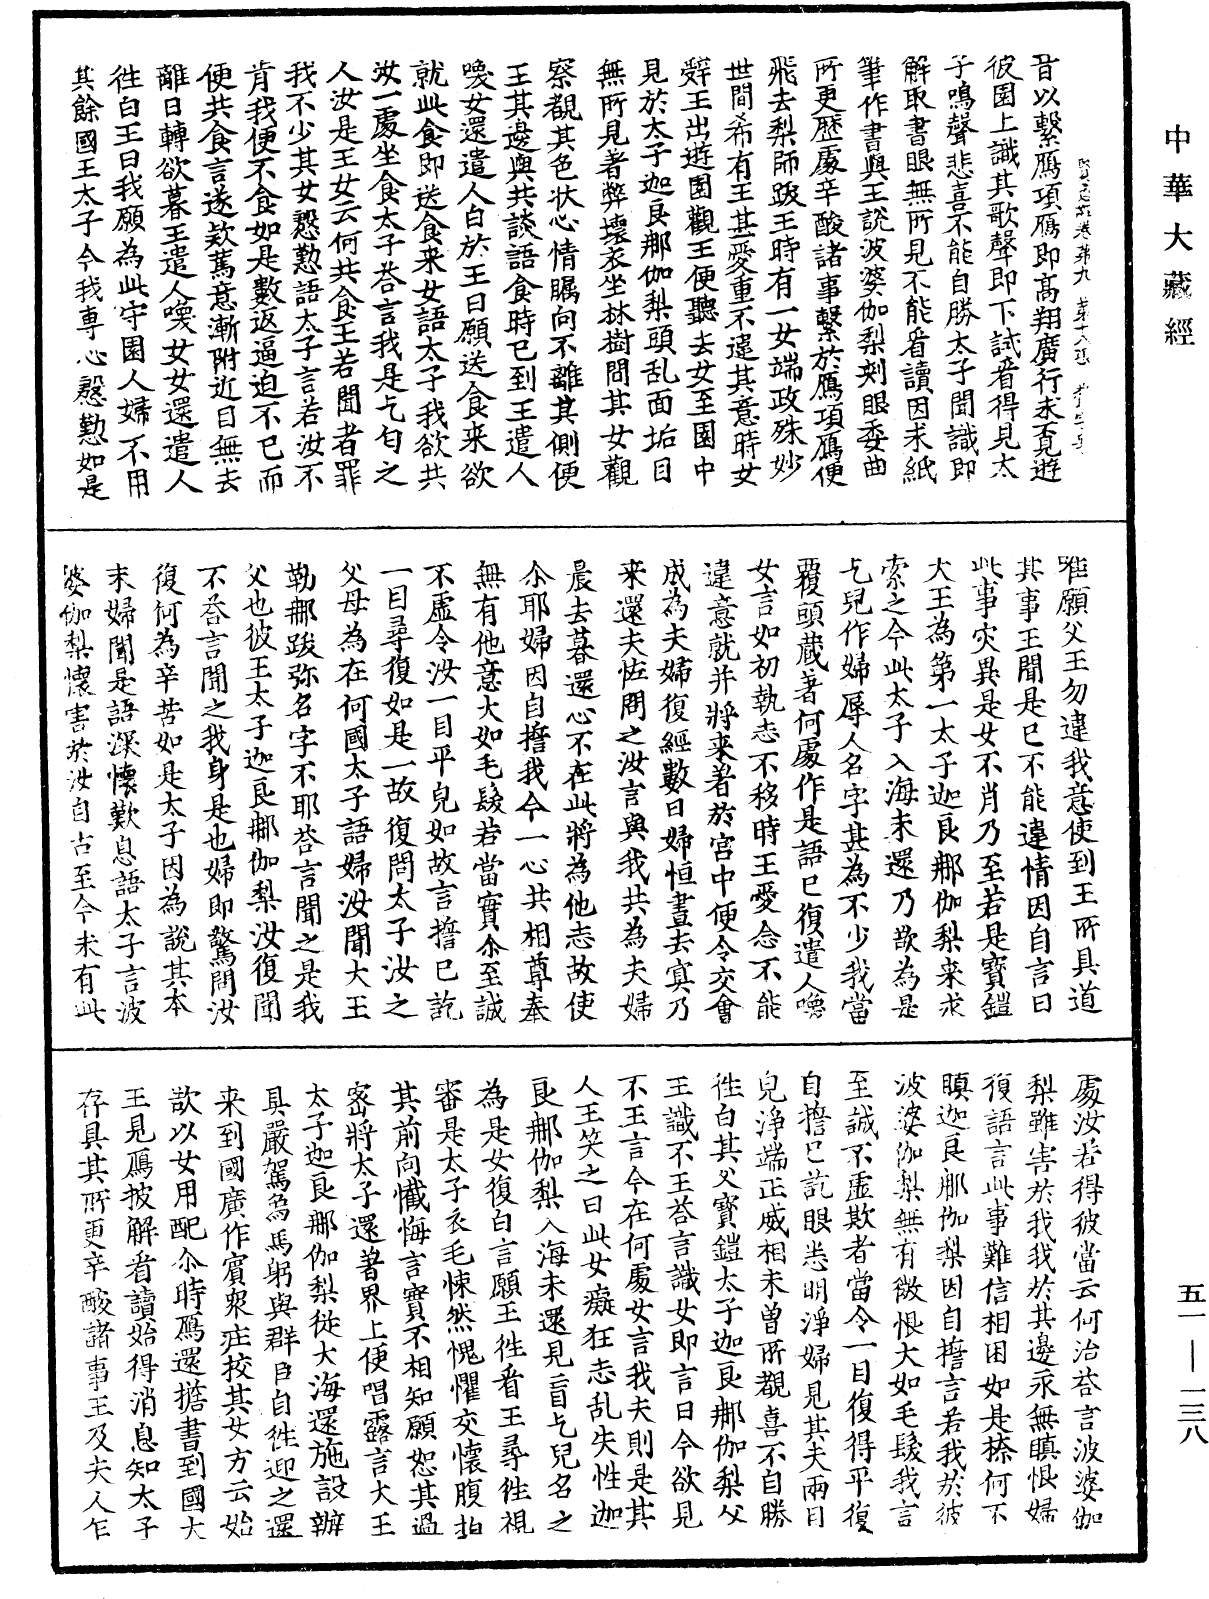 中華大藏經
賢愚經卷第九 第十六張
音以繫鴈項鴈即高翔廣行求覓遊
彼園上識其歌聲即下試看得見太
子鳴聲悲喜不能自勝太子聞識即
解取書眼無所見不能看讀因求紙
筆作書與王說波婆伽梨刺眼委曲
所更歷處辛酸諸事繫於鴈項鴈便
飛去梨師跋王時有一女端政殊妙
世間希有王甚愛重不違其意時女
辭王出遊園觀王便聽去女至園中
見於太子迦良那伽梨頭亂面垢目
無所見著弊壞衣坐林樹間其女觀
察觀其色狀心情矚向不離其側便
王其邊與共談語食時已到王遣人
喚女還遣人白於王曰願送食來欲
就此食即送食來女語太子我欲共
汝一處坐食太子荅言我是乞匂之
人汝是王女云何共食王若聞者罪
我不少其女慇懃語太子言若汝不
肯我便不食如是數返逼迫不已而
便共食言遂欵篤意漸附近目無去
離日轉欲暮王遣人喚女女還遣人
往白王曰我願為此守園人婦不用
其餘國王太子今我專心慇懃如是
唯願父王勿違我意使到王所具道
其事王聞是已不能違情因自言曰
此事灾異是女不肖乃至若是寶鎧
大王為第一太子迦良那伽梨来求
索之今此太子入海未還乃欲為是
乞兒作婦辱人名字甚為不少我當
覆頭藏著何處作是語已復遣人喚
女言如初執志不移時王愛念不能
違意就并將来著於宮中便令交會
成為夫婦復經數日婦恒晝去㝠乃
来還夫恠問之汝言與我共為夫婦
晨去暮還心不在此將為他志故使
尒耶婦因自擔我今一心共相尊奉
無有他意大如毛髮若當實尒至誠
不虛令汝一目平皃如故言擔已訖
一目尋復如是一故復問太子汝之
父母為在何國太子語婦汝聞大王
勒那跋弥名字不耶荅言聞之是我
父也彼王太子迦良那伽梨汝復聞
不荅言聞之我身是也婦即驚問汝
復何為辛苦如是太子因為說其本
末婦聞是語深懷歎息語太子言波
婆伽梨懷害於汝自古至今未有此
處汝若得彼當云何治荅言波婆伽
梨雖害於我我於其邊永無瞋恨婦
復語言此事難信相困如是㮈何不
瞋迦良那伽梨因自擔言若我於彼
波婆伽梨無有微恨大如毛髮我言
至誠不虛欺者當令一目復得平復
自擔已訖眼悉明淨婦見其夫兩目
皃淨端正威相未曾所覩喜不自勝
往白其父寶鎧太子迦良那伽梨父
王識不王荅言識女即言曰今欲見
不王言今在何處女言我夫則是其
人王笑之曰此女癡狂志乱失性迦
良那伽梨入海未還見盲乞兒名之
為是女復白言願王往看王尋往視
審是太子衣毛悚然愧懼交懷腹拍
其前向懺悔言實不相知願恕其過
密將太子還著界上便唱露言大王
太子迦良那伽梨從大海還施設辦
具嚴駕為馬躬與群臣自往迎之還
来到國廣作賓衆莊挍其女方云始
欲以女用配尒時鴈還擔書到國大
王見鴈披解看讀始得消息知太子
存具其所更辛酸諸事王及夫人乍
五一—一三八